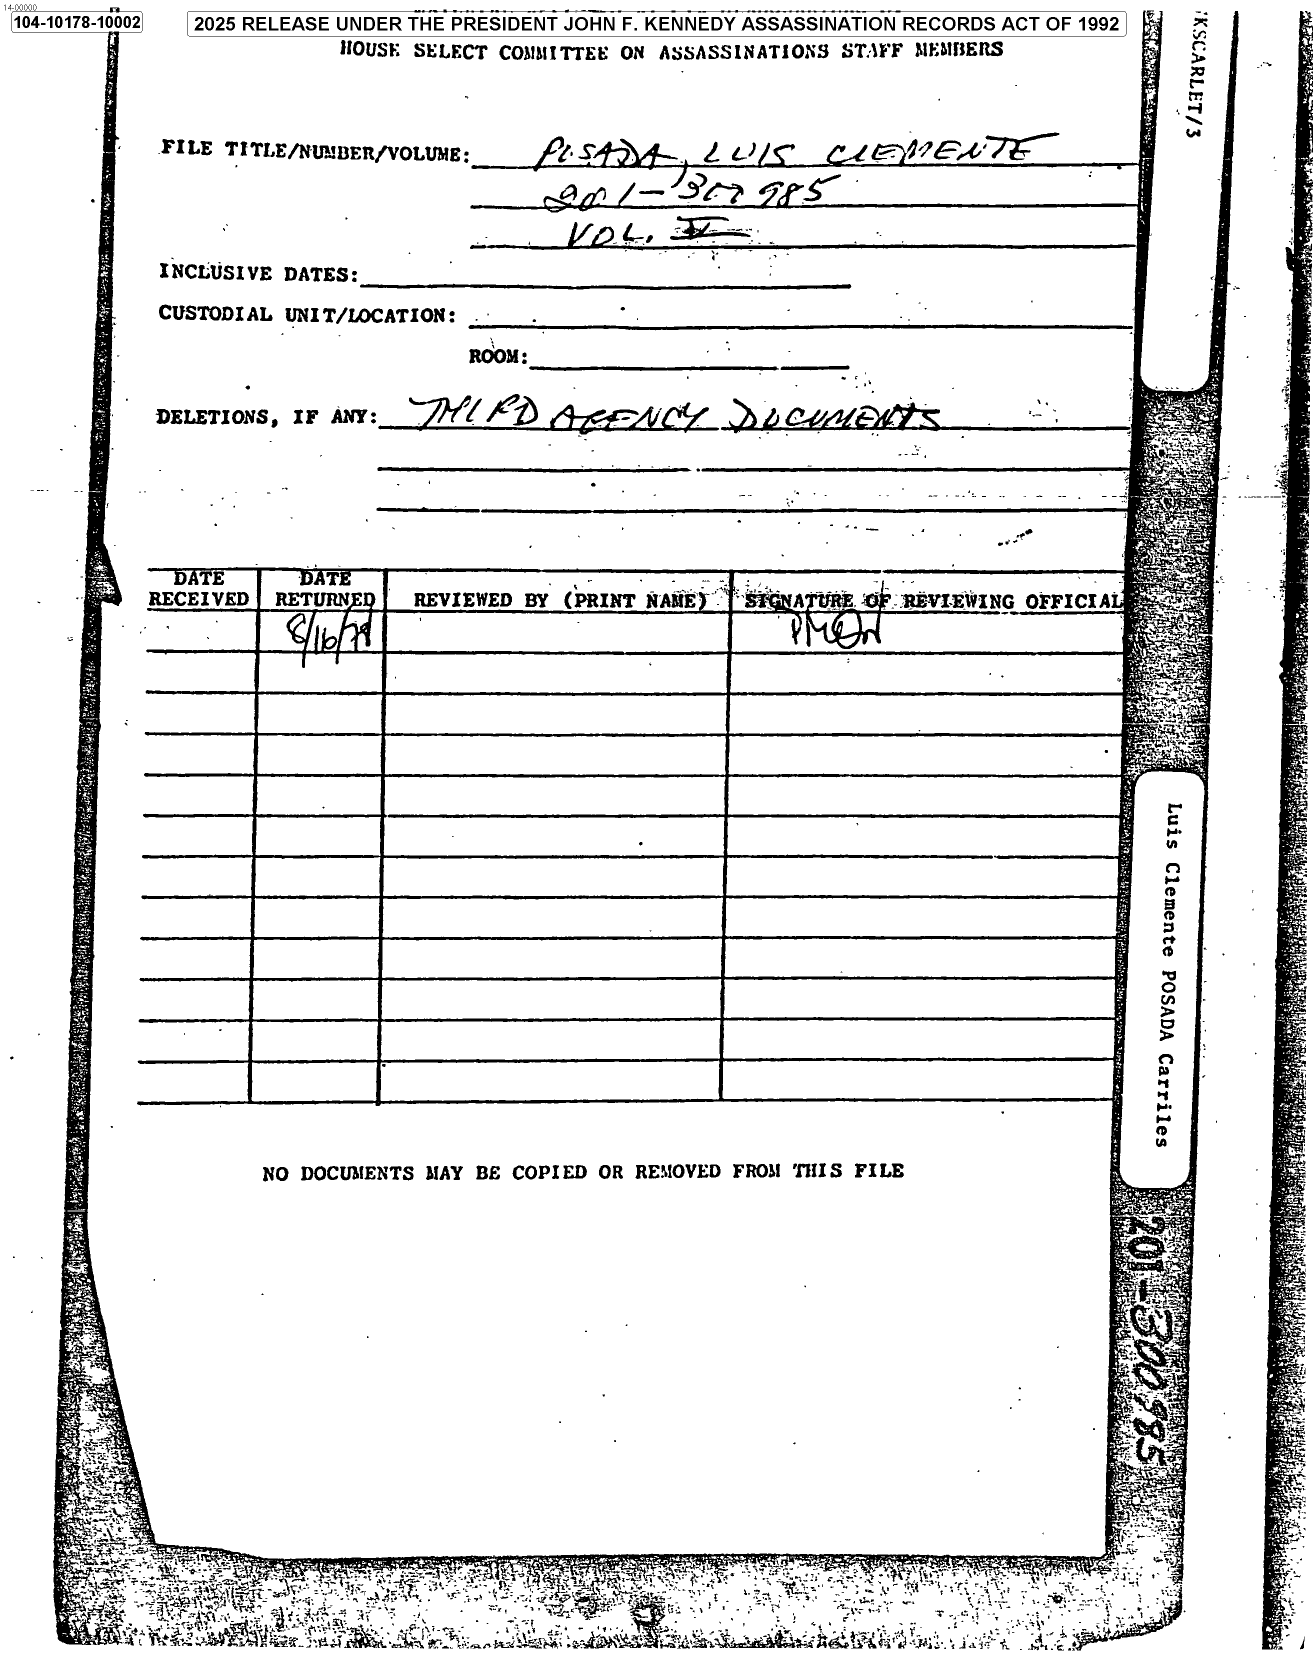 14-00000
104-10178-10002
2025 RELEASE UNDER THE PRESIDENT JOHN F. KENNEDY ASSASSINATION RECORDS ACT OF 1992
HOUSE SELECT COMMITTEE ON ASSASSINATIONS STAFF MEMBERS
FILE TITLE/NUMBER/VOLUME: POSADA, LUIS CLEMENTE
201-300985
VOL. V
INCLUSIVE DATES:
CUSTODIAL UNIT/LOCATION:
ROOM:
DELETIONS, IF ANY: THIRD AGENCY DOCUMENTS
DATE RECEIVED
DATE RETURNED
REVIEWED BY (PRINT NAME)
SIGNATURE OF REVIEWING OFFICIAL
8/16/78
NO DOCUMENTS MAY BE COPIED OR REMOVED FROM THIS FILE
KSCARLET/3
Luis Clemente POSADA Carriles
201-300985